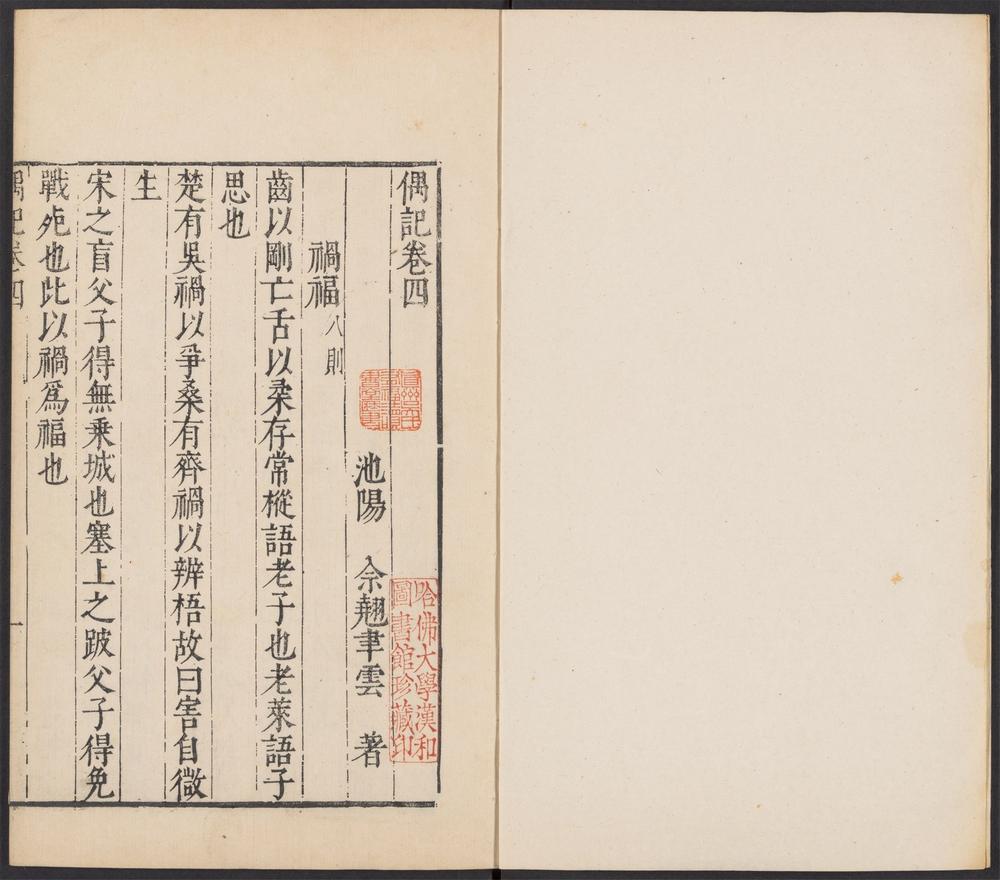 偶記卷四
池陽 佘翹聿雲 著
禍福八則
齒以剛亡舌以柔存常樅語老子也老萊語子
思也
楚有吳禍以爭桑有齊禍以辨梧故曰害自微
生
宋之盲父子得無乗城也塞上之跛父子得免
戰死也此以禍爲福也
偶記卷四
一
哈佛大學漢和
圖書館珍藏印